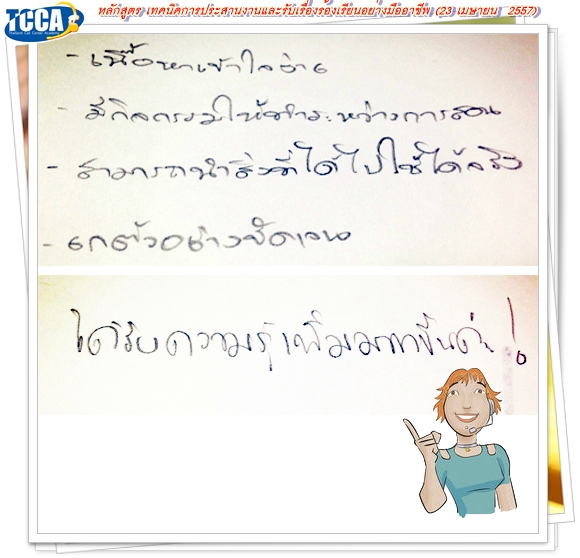 TCCA
Thailand Call Center Academy
หลักสูตร เทคนิคการประสานงานและรับเรื่องร้องเรียนอย่างมืออาชีพ (23 เมษายน 2557)
- เนื้อหาเข้าใจง่าย
- มีกิจกรรมให้ทำระหว่างการสอน
- สามารถนำสิ่งที่ได้ไปใช้ได้จริง
- ยกตัวอย่างชัดเจน
ได้รับความรู้เพิ่มมากขึ้นค่ะ !